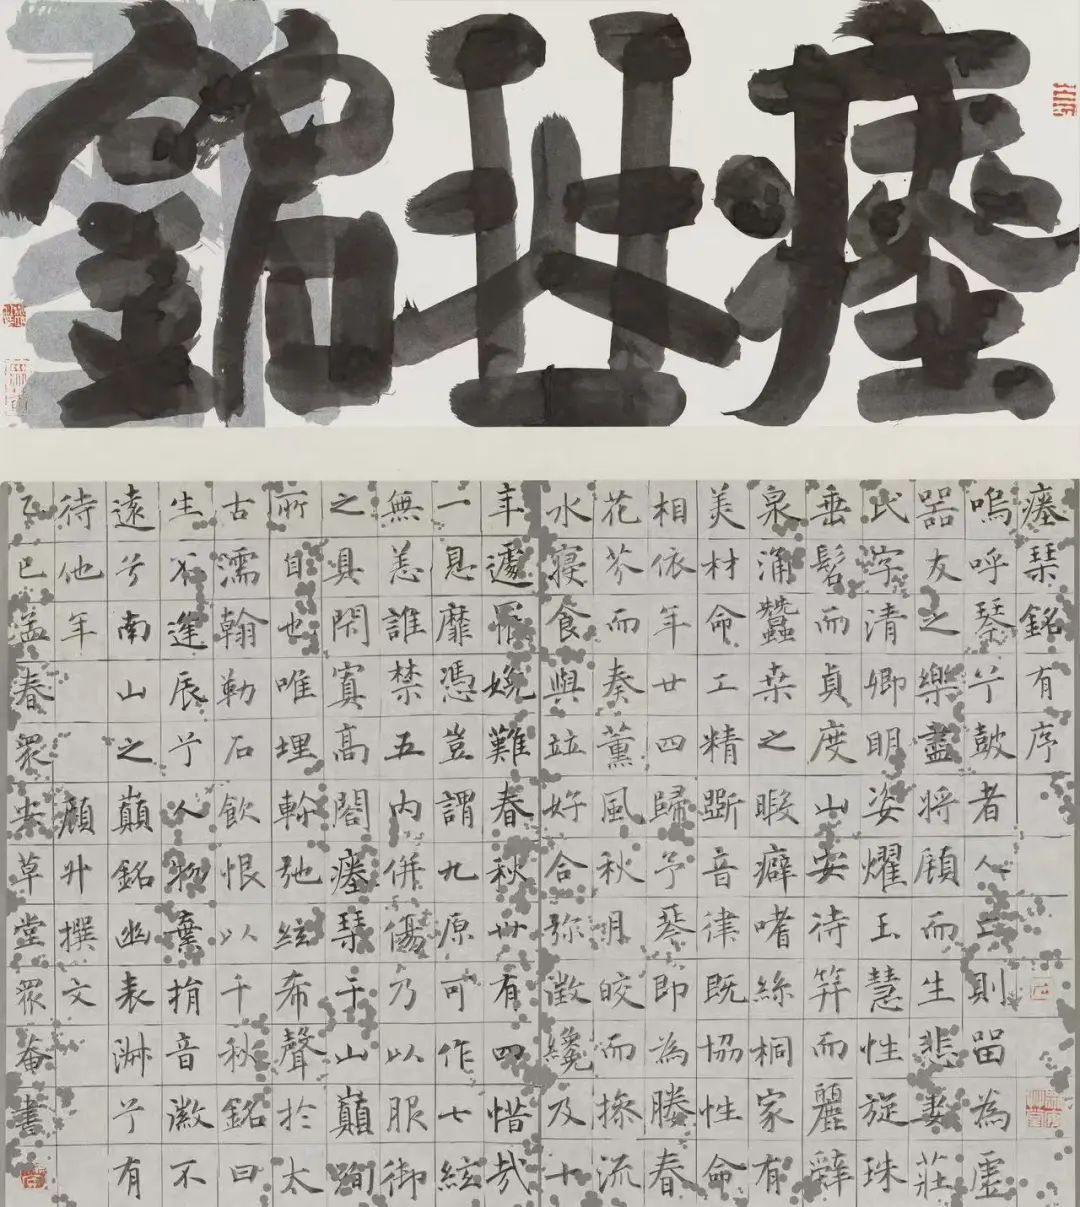 瘞珡銘
瘞琴銘有序
嗚呼琴兮鼓者人亡則留為虛
器友之樂盡將顧而生悲妻莊
氏字清卿明姿燿玉慧性旋珠
垂髫而貞度山安待笄而麗辭
泉涌蠶桒之暇癖嗜絲桐家有
美材命工精斲音律既協性命
相依年廿四歸予琴即為媵春
花芬而奏薰風秋月皎而操流
水寑食與竝好合弥徵纔及十
年遽罹娩難春秋卅有四惜哉
一息靡憑豈謂九原可作七絃
無恙誰禁五内併傷乃以服御
之具閉寘高閣瘞琴于山巔殉
所自也唯埋幹弛絃希聲於太
古濡翰勒石飲恨以千秋銘曰
生不逢辰兮人物棄捐音徽不
遠兮南山之巔銘幽表淑兮有
待他年 顧升撰文
乙巳孟春眾草堂眾庵書